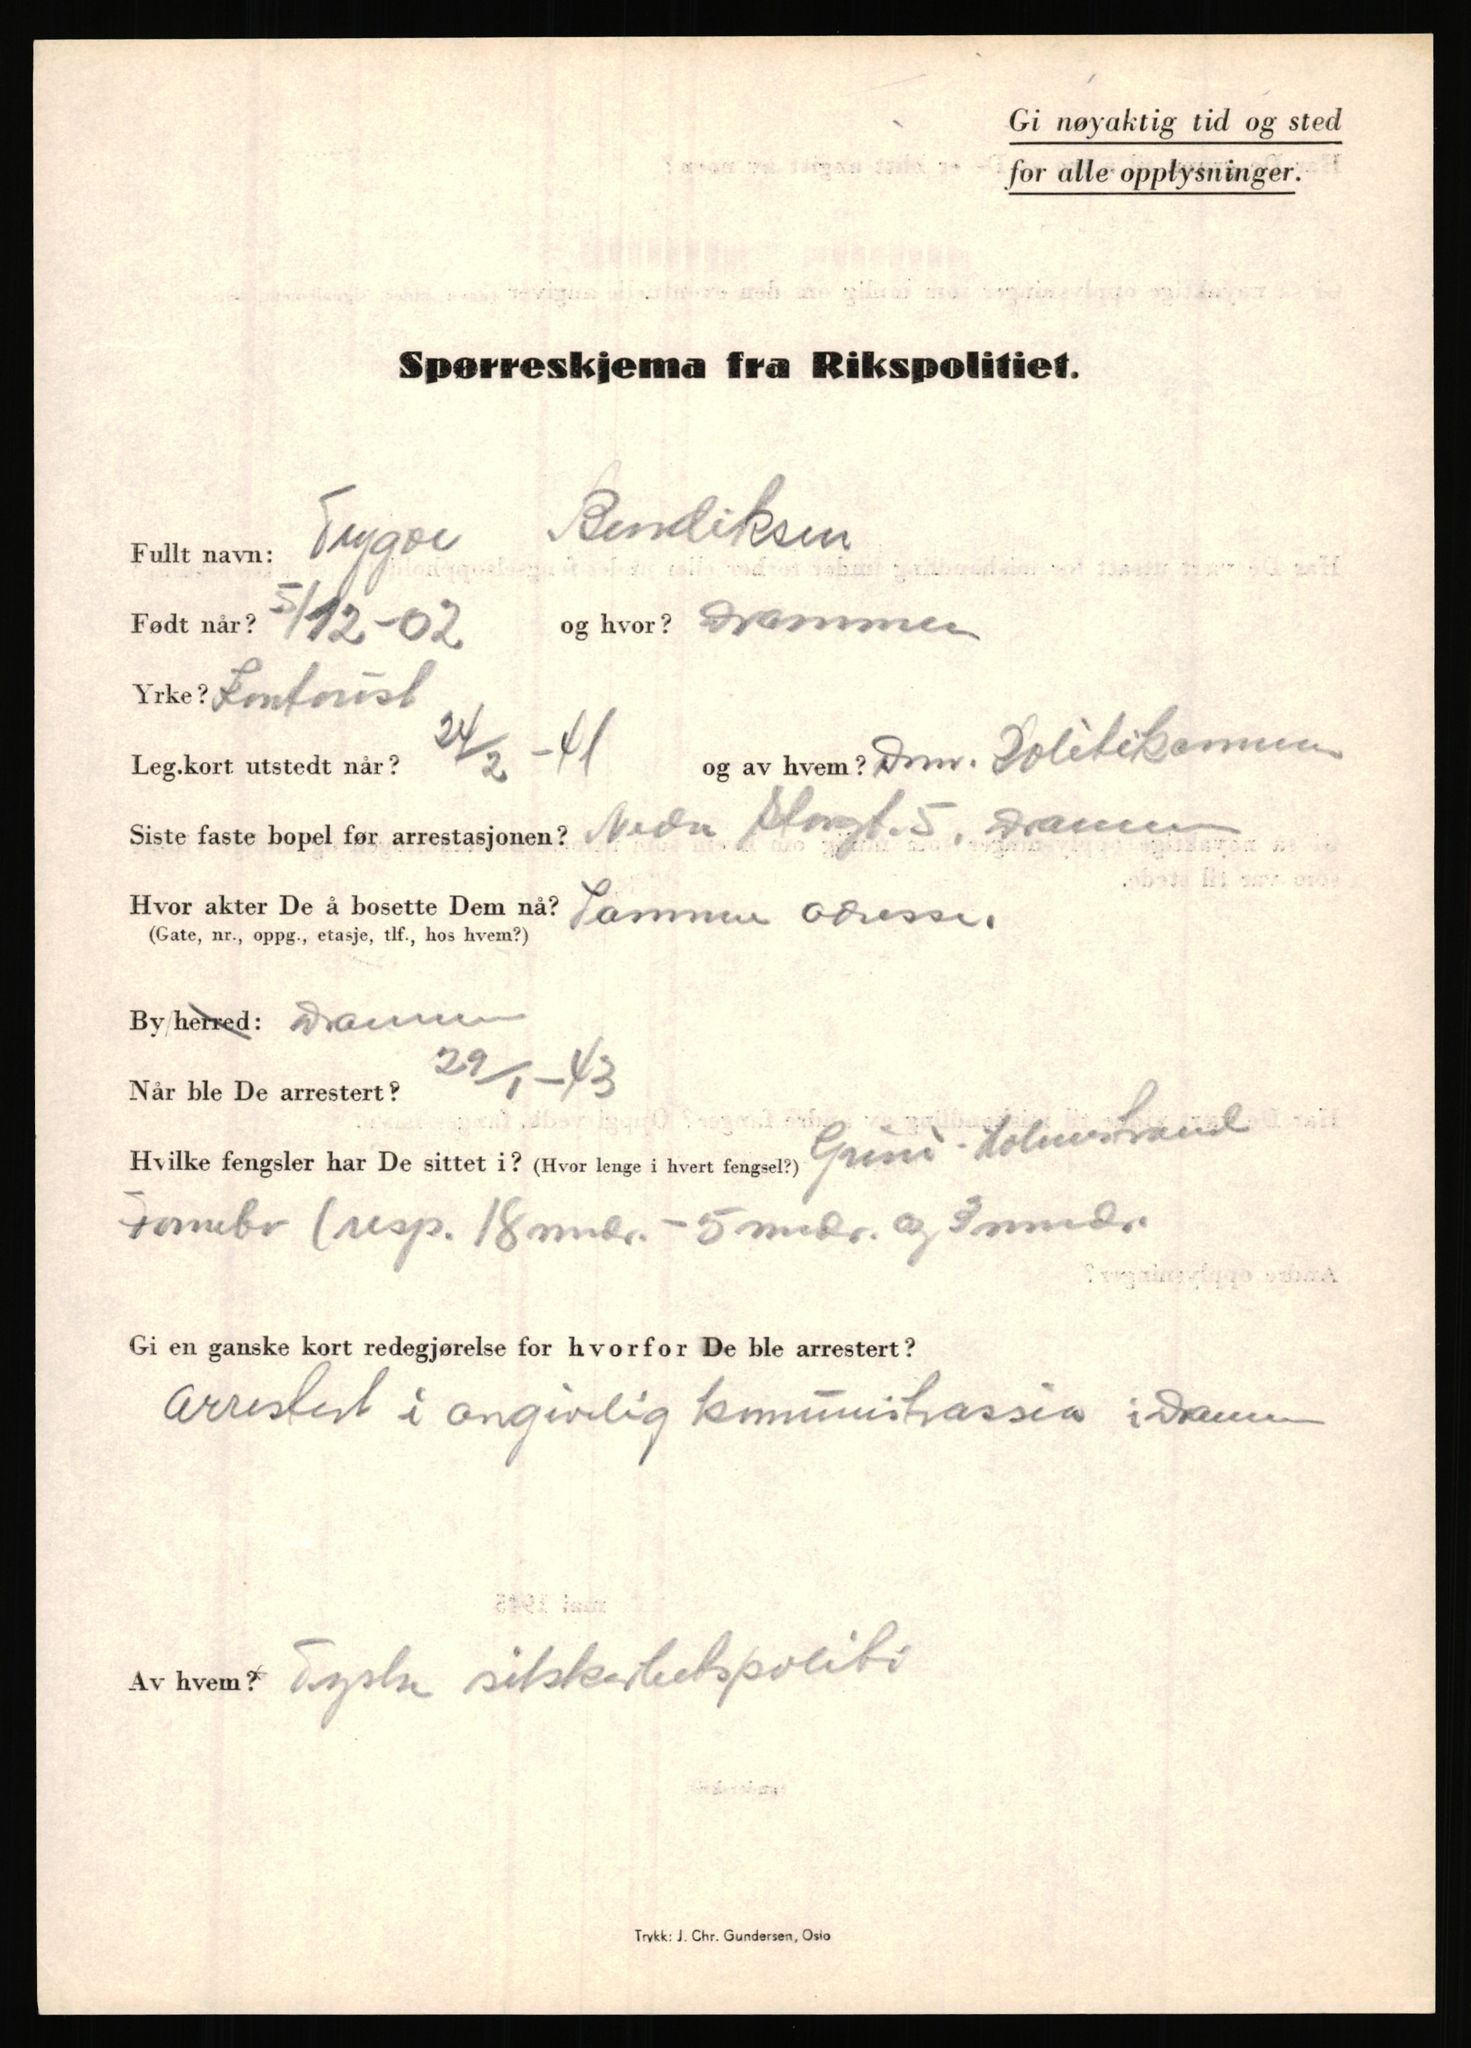 Gi nøyaktig tid og sted
for alle opplysninger.
Spørreskjema fra Rikspolitiet.
Fullt navn: Trygve Bendiksen
Født når? 5/12-02 og hvor? Drammen
Yrke? Kontorist
Leg.kort utstedt når? 24/2-41 og av hvem? Drm. Politikammer
Siste faste bopel før arrestasjonen? Nedre Storgt. 5, Drammen
Hvor akter De å bosette Dem nå? Samme adresse.
(Gate, nr., oppg., etasje, tlf., hos hvem?)
By/herred: Drammen
Når ble De arrestert? 29/1-43
Hvilke fengsler har De sittet i? (Hvor lenge i hvert fengsel?) Grini - Holmestrand
Fornebo (resp. 18 mndr. - 5 mndr. og 3 mndr.
Gi en ganske kort redegjørelse for hvorfor De ble arrestert?
Arrestert i angivelig kommunistrassia i Drammen
Av hvem? Tyske sikkerhetspoliti
Trykk: J. Chr. Gundersen, Oslo